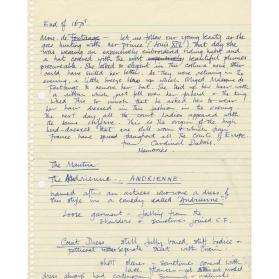 End of 167
Mme de Fontange - let us follow our young beauty as she
goes hunting with her Prince (Louis XIV) That day she
was wearing an exquisitely embroidered riding habit and
a hat covered with the most beautiful plumes
procurable. She looked so elegant in this costume none other
could have suited her better. As they were retiring in the
evening, a little breeze blew up which obliged Madame de
Fontange to remove her hat. She tied up her hair with
a ribbon which just fell over her forehead and the King
liked this so much that he asked her to wear
her hair dressed in this fashion in the evening.
The next day all the court ladies appeared with
the same coiffure. This is the origin of the high
head-dresses that are still worn & which from
France have spread throughout all the Courts of Europe.
from Cardinal Dubois.
Memories.
The Mantua
The Andrienne. ANDRIENNE.
named after an actress who wore a dress of
this style in a comedy called "Andrienne".
Loose garment - falling from the
shoulders & sometime joined C.F.
Court Dress still fully boned stiff bodice &
with train
short sleeves - sometimes covered with
lace
dress always had